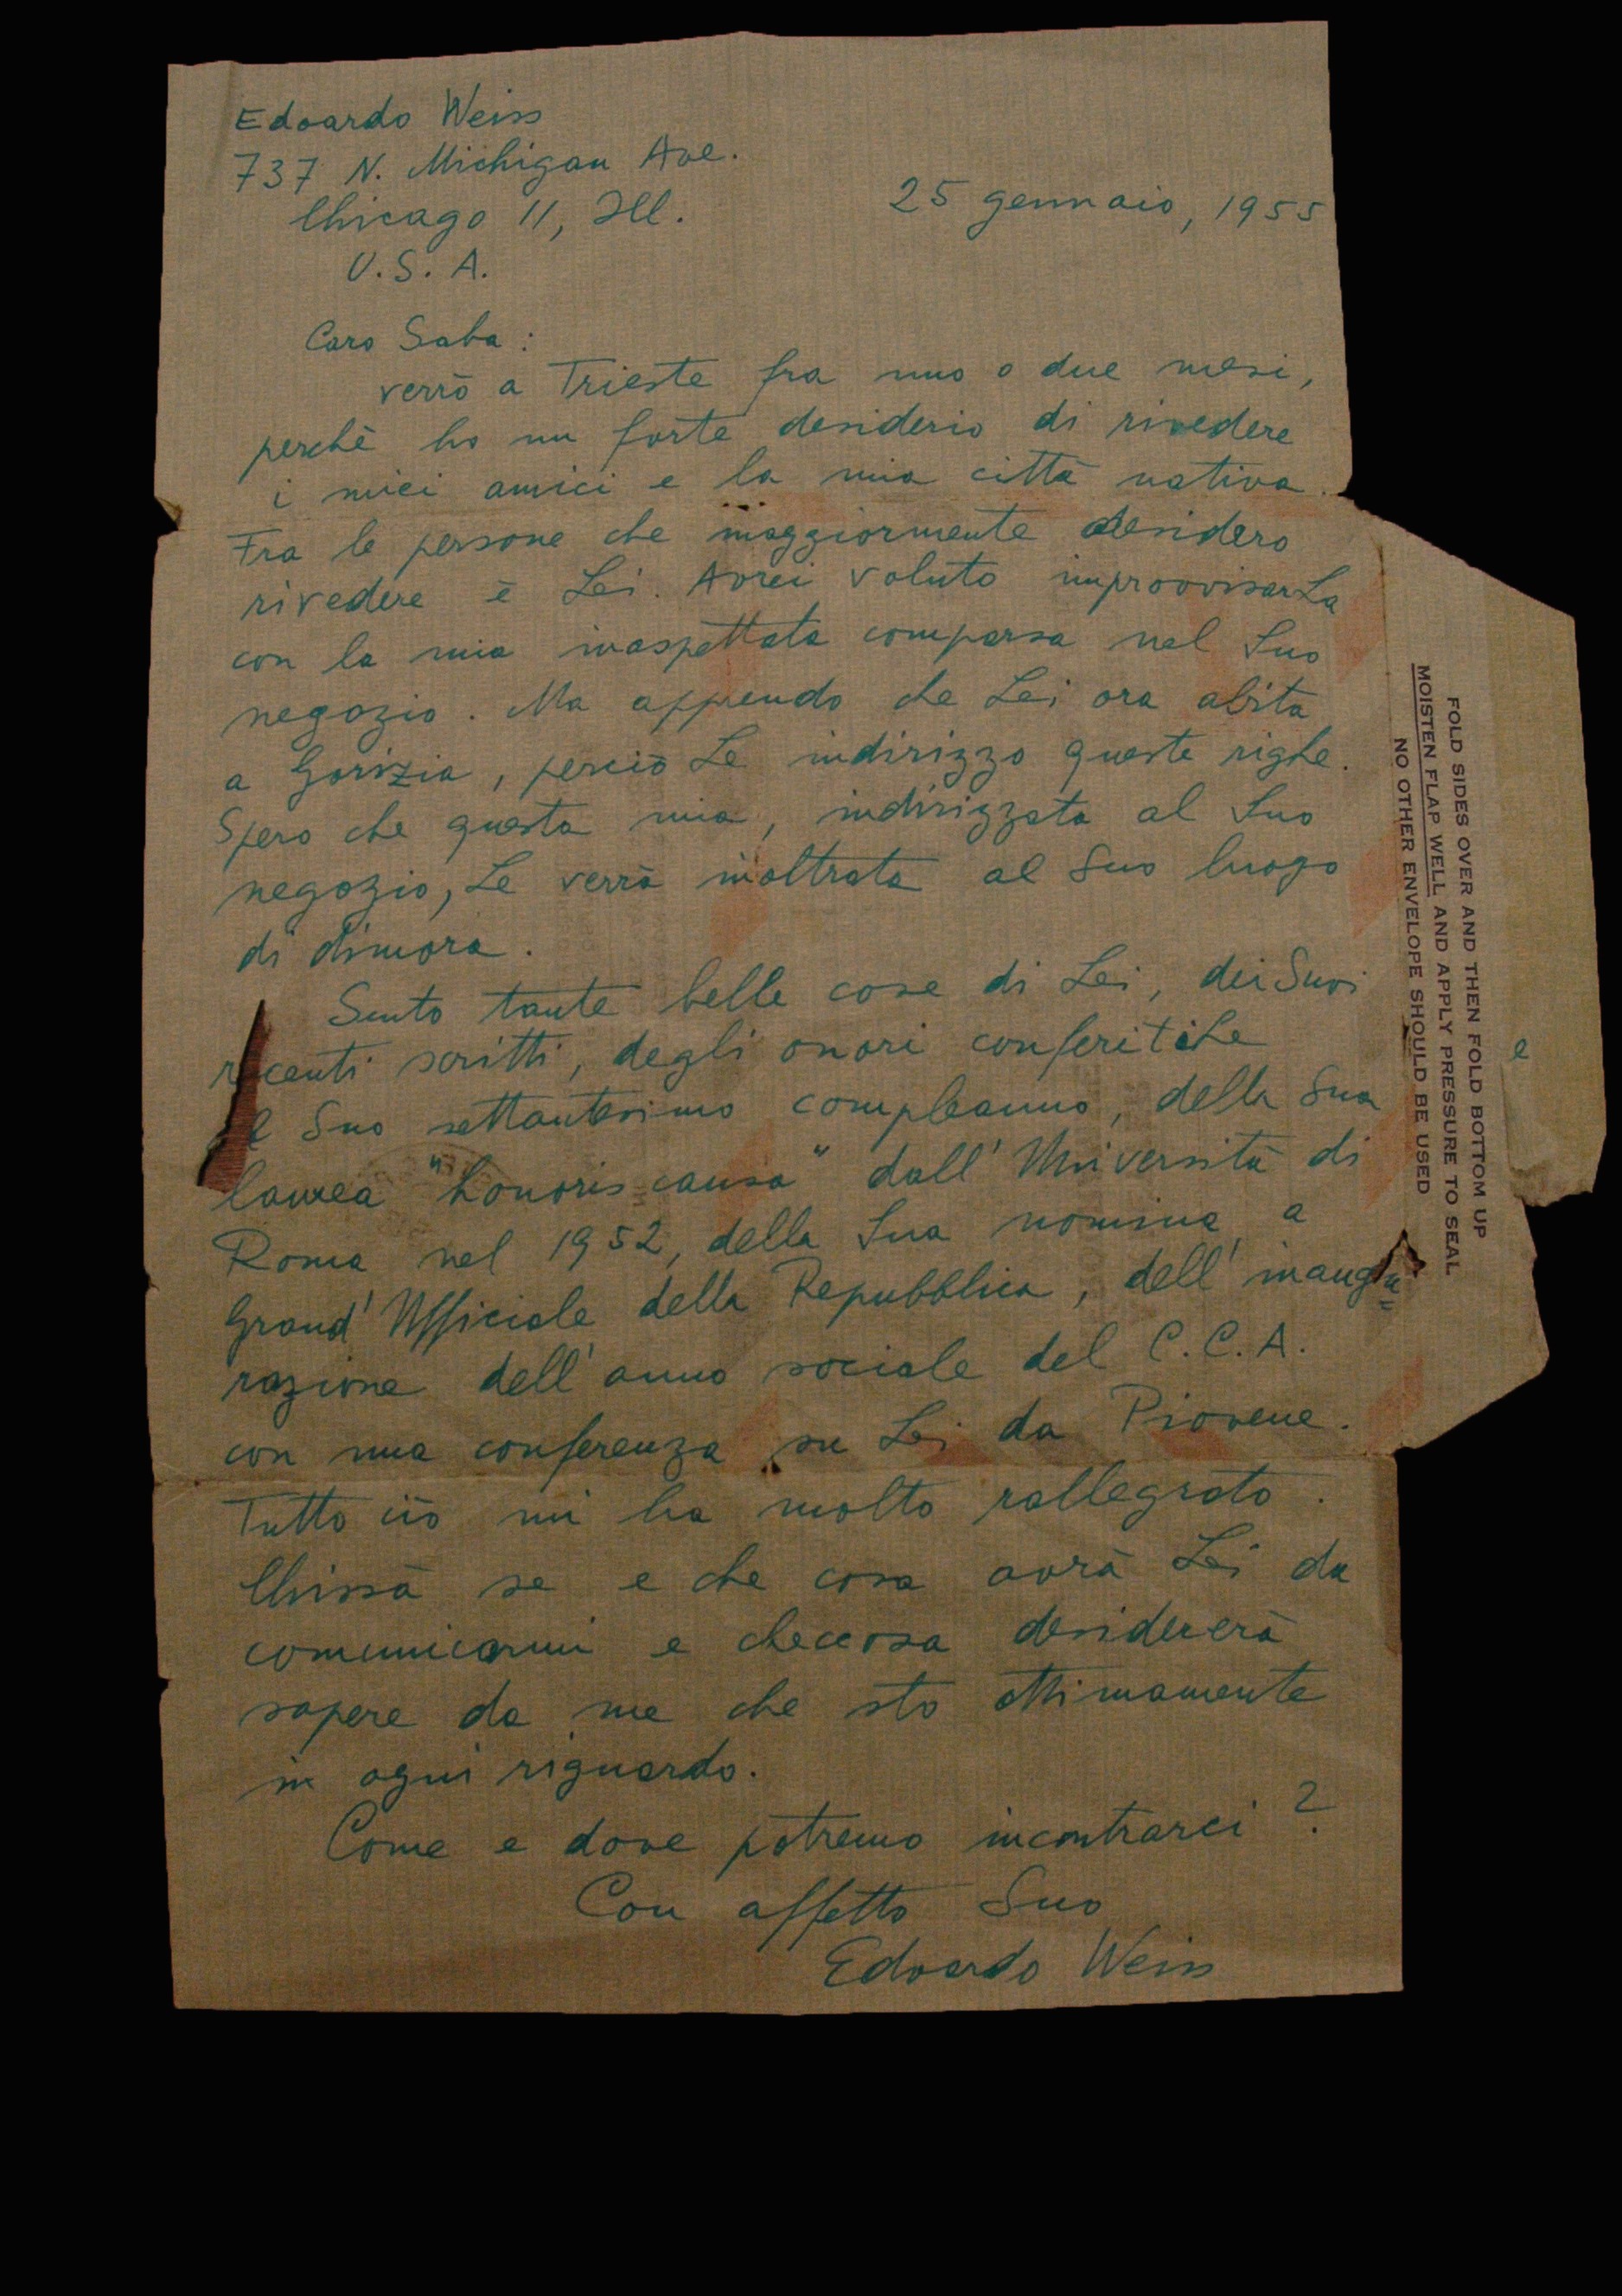 Edoardo Weiss
737 N. Michigan Ave.
Chicago 11, Ill.
U.S.A.
25 gennaio, 1955
Caro Saba:
verrò a Trieste fra uno o due mesi,
perchè ho un forte desiderio di rivedere
i miei amici e la mia città nativa.
Fra le persone che maggiormente desidero
rivedere è Lei. Avrei voluto improvvisarLa
con la mia inaspettata comparsa nel Suo
negozio. Ma apprendo che Lei ora abita
a Gorizia, perciò Le indirizzo queste righe.
Spero che questa mia, indirizzata al Suo
negozio, Le verrà inoltrata al Suo luogo
di dimora.
Sento tante belle cose di Lei, dei Suoi
recenti scritti, degli onori conferitiLe
Suo settantesimo compleanno, della Sua
laurea "honoris causa" dall'Università di
Roma nel 1952, della Sua nomina a
Grand'Ufficiale della Repubblica, dell'inaugu=
razione dell'anno sociale del C.C.A.
con una conferenza su Lei da Piovene.
Tutto ciò mi ha molto rallegrato.
Chissà se e che cosa avrà Lei da
comunicarmi e checcosa desidererà
sapere da me che sto ottimamente
in ogni riguardo.
Come e dove potremo incontrarci?
Con affetto Suo
Edoardo Weiss
FOLD SIDES OVER AND THEN FOLD BOTTOM UP
MOISTEN FLAP WELL AND APPLY PRESSURE TO SEAL
NO OTHER ENVELOPE SHOULD BE USED
e